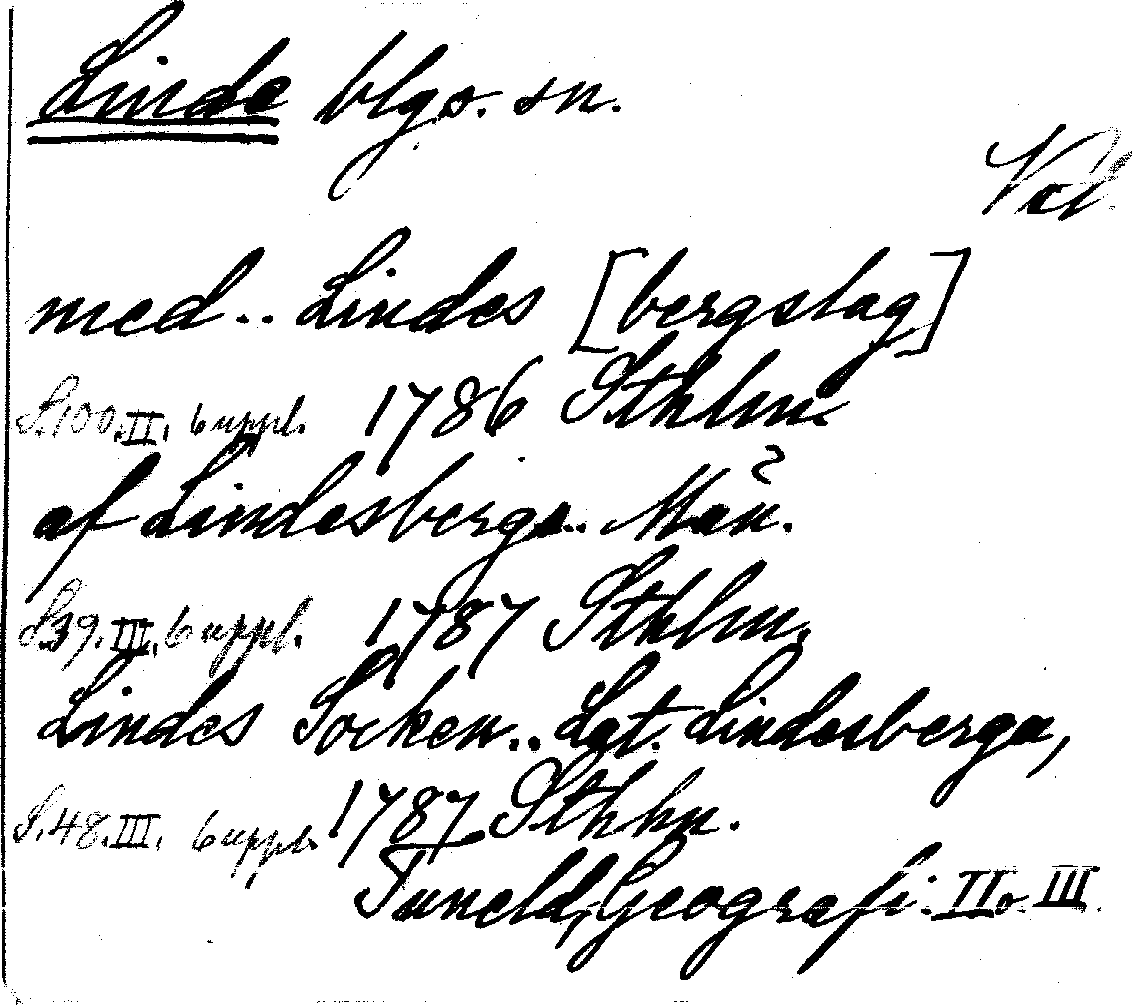 Linde blgs. sn.
Vstl.
med.. Lindes [bergslag]
S.100.II. 6 uppl. 1786 Sthlm.
af Lindesbergs.. Män.
S.39.III. 6 uppl. 1787 Sthlm.
Lindes Socken.. Lgt. Lindesberga,
S.48.III. 6 uppl. 1787 Sthlm.
Tuneld, Geografi. II o. III.